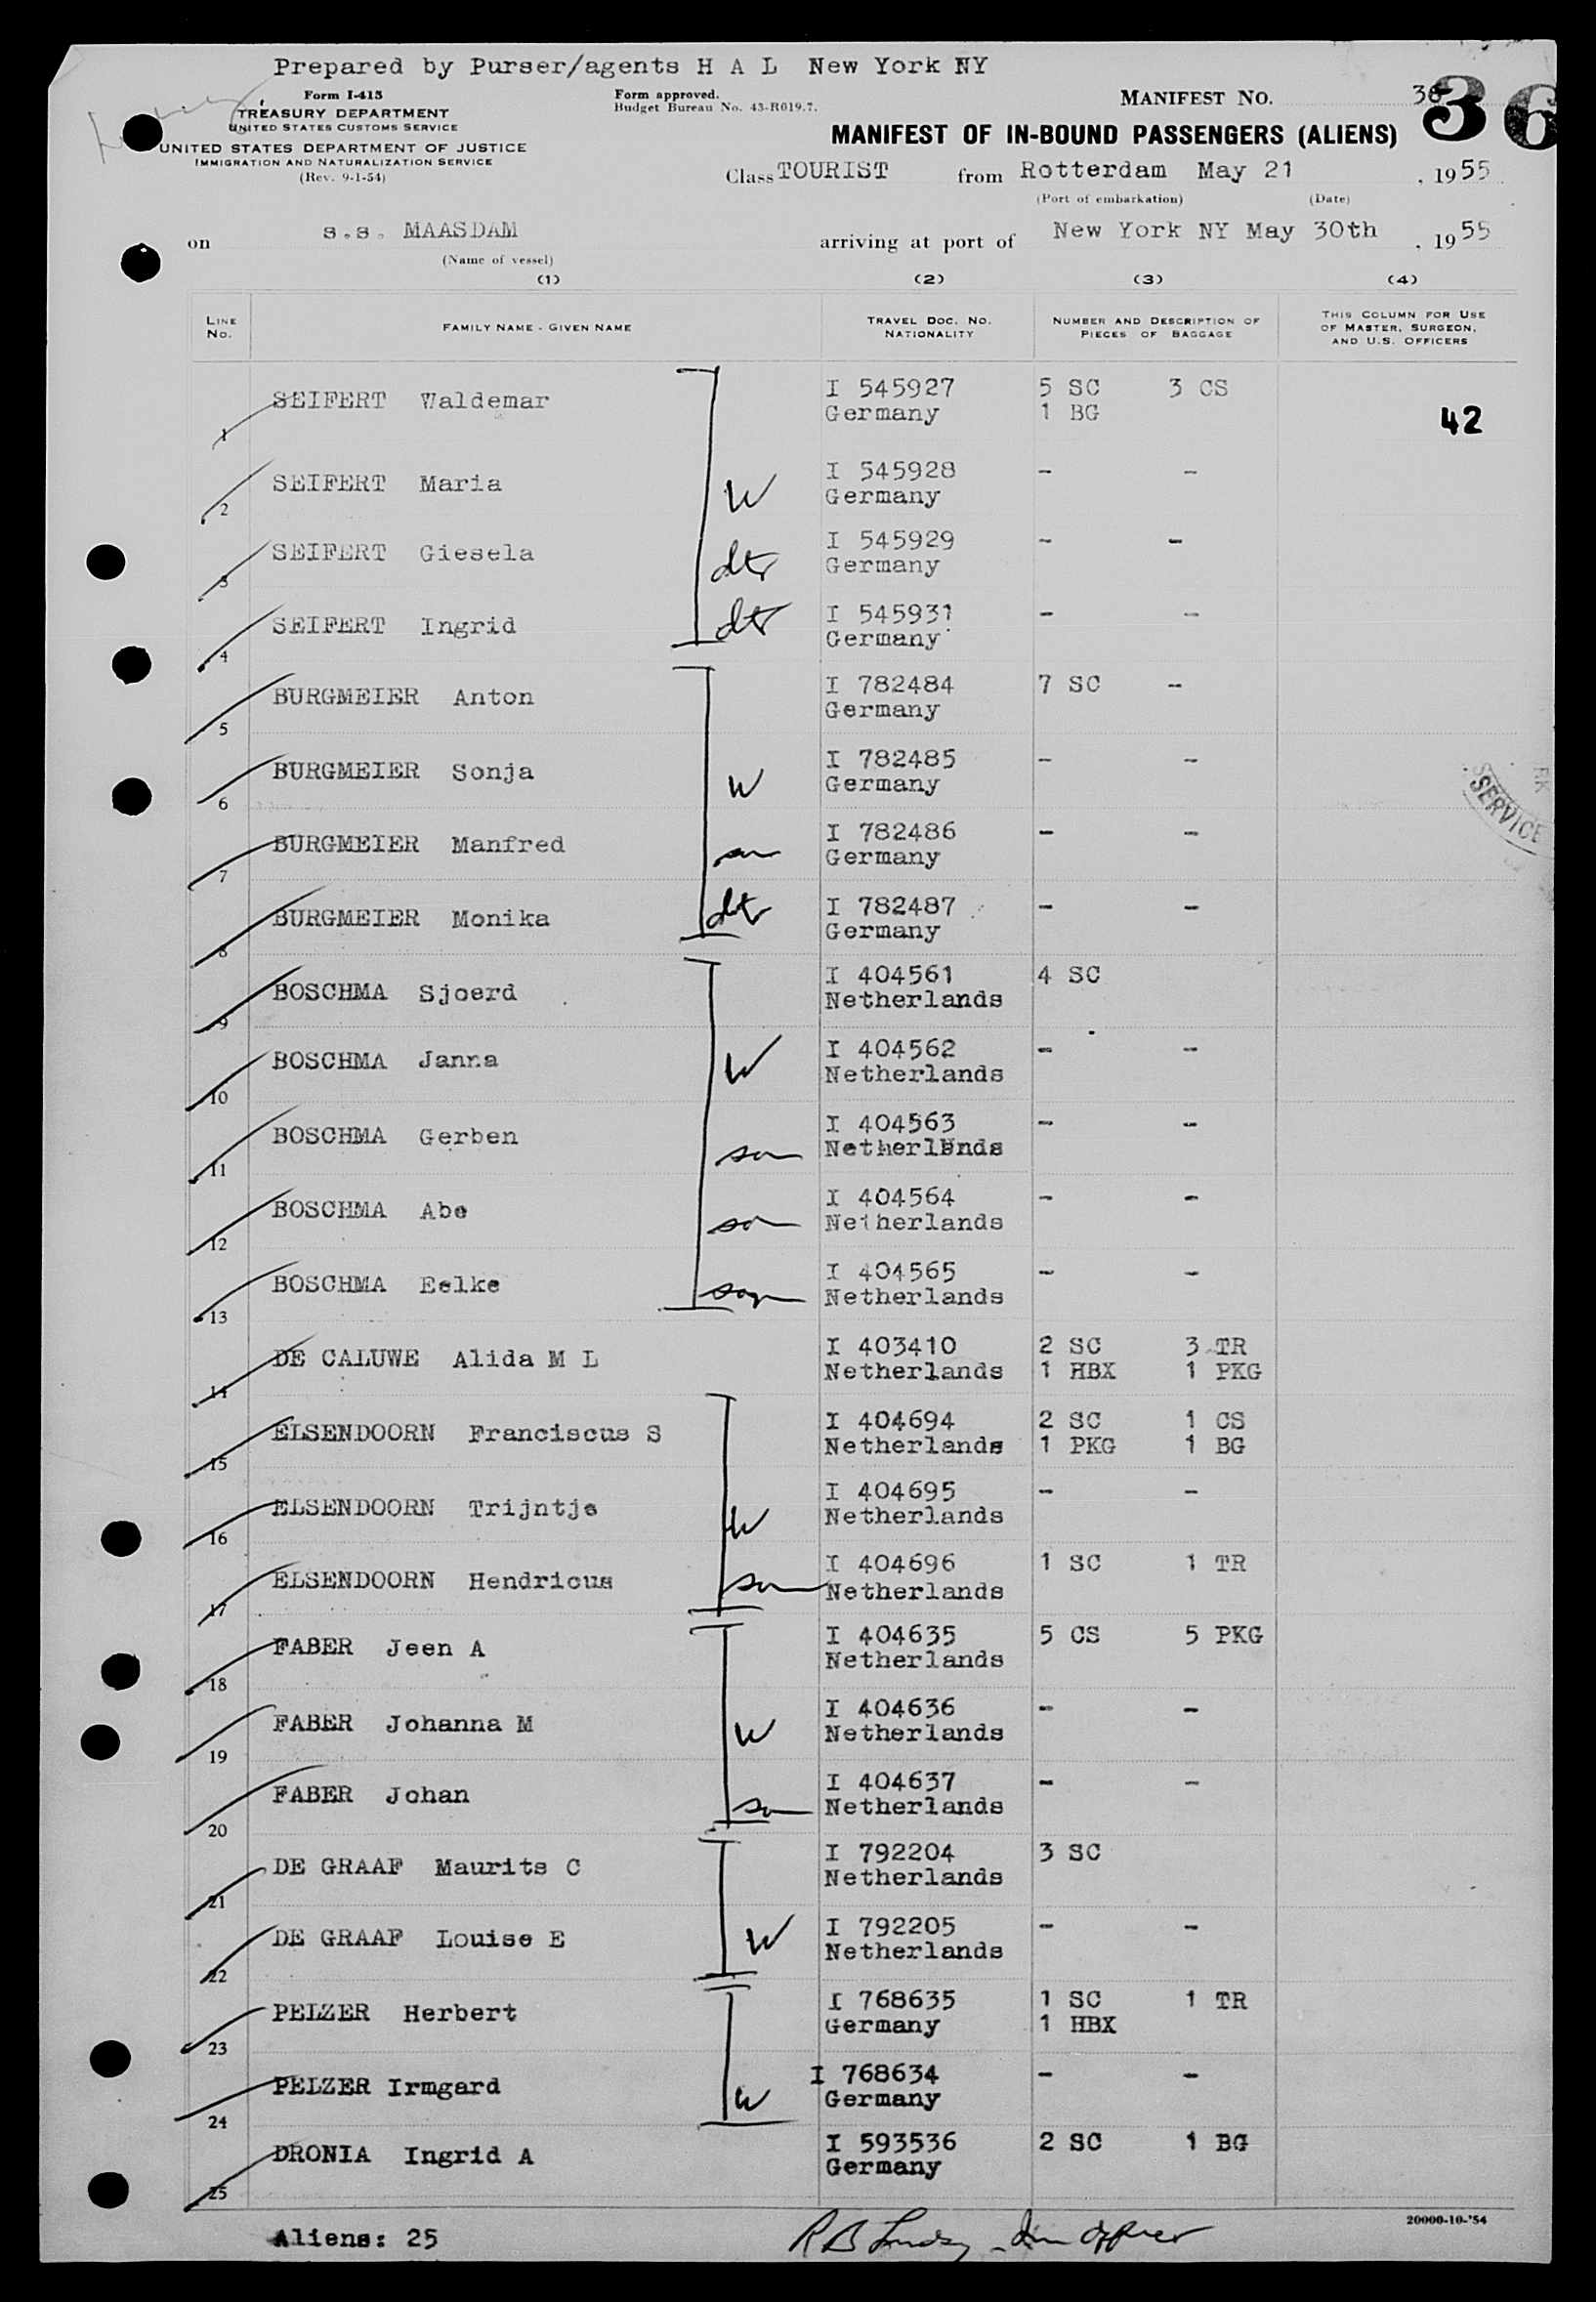 Prepared by Purser/agents H A L New York NY
Form I-415
TREASURY DEPARTMENT
UNITED STATES CUSTOMS SERVICE
UNITED STATES DEPARTMENT OF JUSTICE
IMMIGRATION AND NATURALIZATION SERVICE
(Rev. 9-1-54)
Form approved.
Budget Bureau No. 43-R019.7.
MANIFEST NO. 36
36
MANIFEST OF IN-BOUND PASSENGERS (ALIENS)
Class TOURIST from Rotterdam May 21, 1955
(Port of embarkation) (Date)
on s.s. MAASDAM arriving at port of New York NY May 30th, 1955
(Name of vessel)
(1) (2) (3) (4)
LINE NO. FAMILY NAME - GIVEN NAME TRAVEL DOC. NO. NATIONALITY NUMBER AND DESCRIPTION OF PIECES OF BAGGAGE THIS COLUMN FOR USE OF MASTER, SURGEON, AND U.S. OFFICERS
1 SEIFERT Waldemar I 545927 5 SC 3 CS
Germany 1 BG 42
2 SEIFERT Maria W I 545928 - -
Germany
3 SEIFERT Giesela dtr I 545929 - -
Germany
4 SEIFERT Ingrid dtr I 545931 - -
Germany
5 BURGMEIER Anton I 782484 7 SC -
Germany
6 BURGMEIER Sonja W I 782485 - -
Germany
7 BURGMEIER Manfred son I 782486 - -
Germany
8 BURGMEIER Monika dtr I 782487 - -
Germany
9 BOSCHMA Sjoerd I 404561 4 SC
Netherlands
10 BOSCHMA Janna W I 404562 - -
Netherlands
11 BOSCHMA Gerben son I 404563 - -
Netherlands
12 BOSCHMA Abe son I 404564 - -
Netherlands
13 BOSCHMA Eelke son I 404565 - -
Netherlands
14 DE CALUWE Alida M L I 403410 2 SC 3 TR
Netherlands 1 HBX 1 PKG
15 ELSENDOORN Franciscus S I 404694 2 SC 1 CS
Netherlands 1 PKG 1 BG
16 ELSENDOORN Trijntje W I 404695 - -
Netherlands
17 ELSENDOORN Hendricus son I 404696 1 SC 1 TR
Netherlands
18 FABER Jeen A I 404635 5 CS 5 PKG
Netherlands
19 FABER Johanna M W I 404636 - -
Netherlands
20 FABER Johan son I 404637 - -
Netherlands
21 DE GRAAF Maurits C I 792204 3 SC
Netherlands
22 DE GRAAF Louise E W I 792205 - -
Netherlands
23 PELZER Herbert I 768635 1 SC 1 TR
Germany 1 HBX
24 PELZER Irmgard W I 768634 - -
Germany
25 DRONIA Ingrid A I 593536 2 SC 1 BG
Germany
SERVICE
20000-10-'54
Aliens: 25